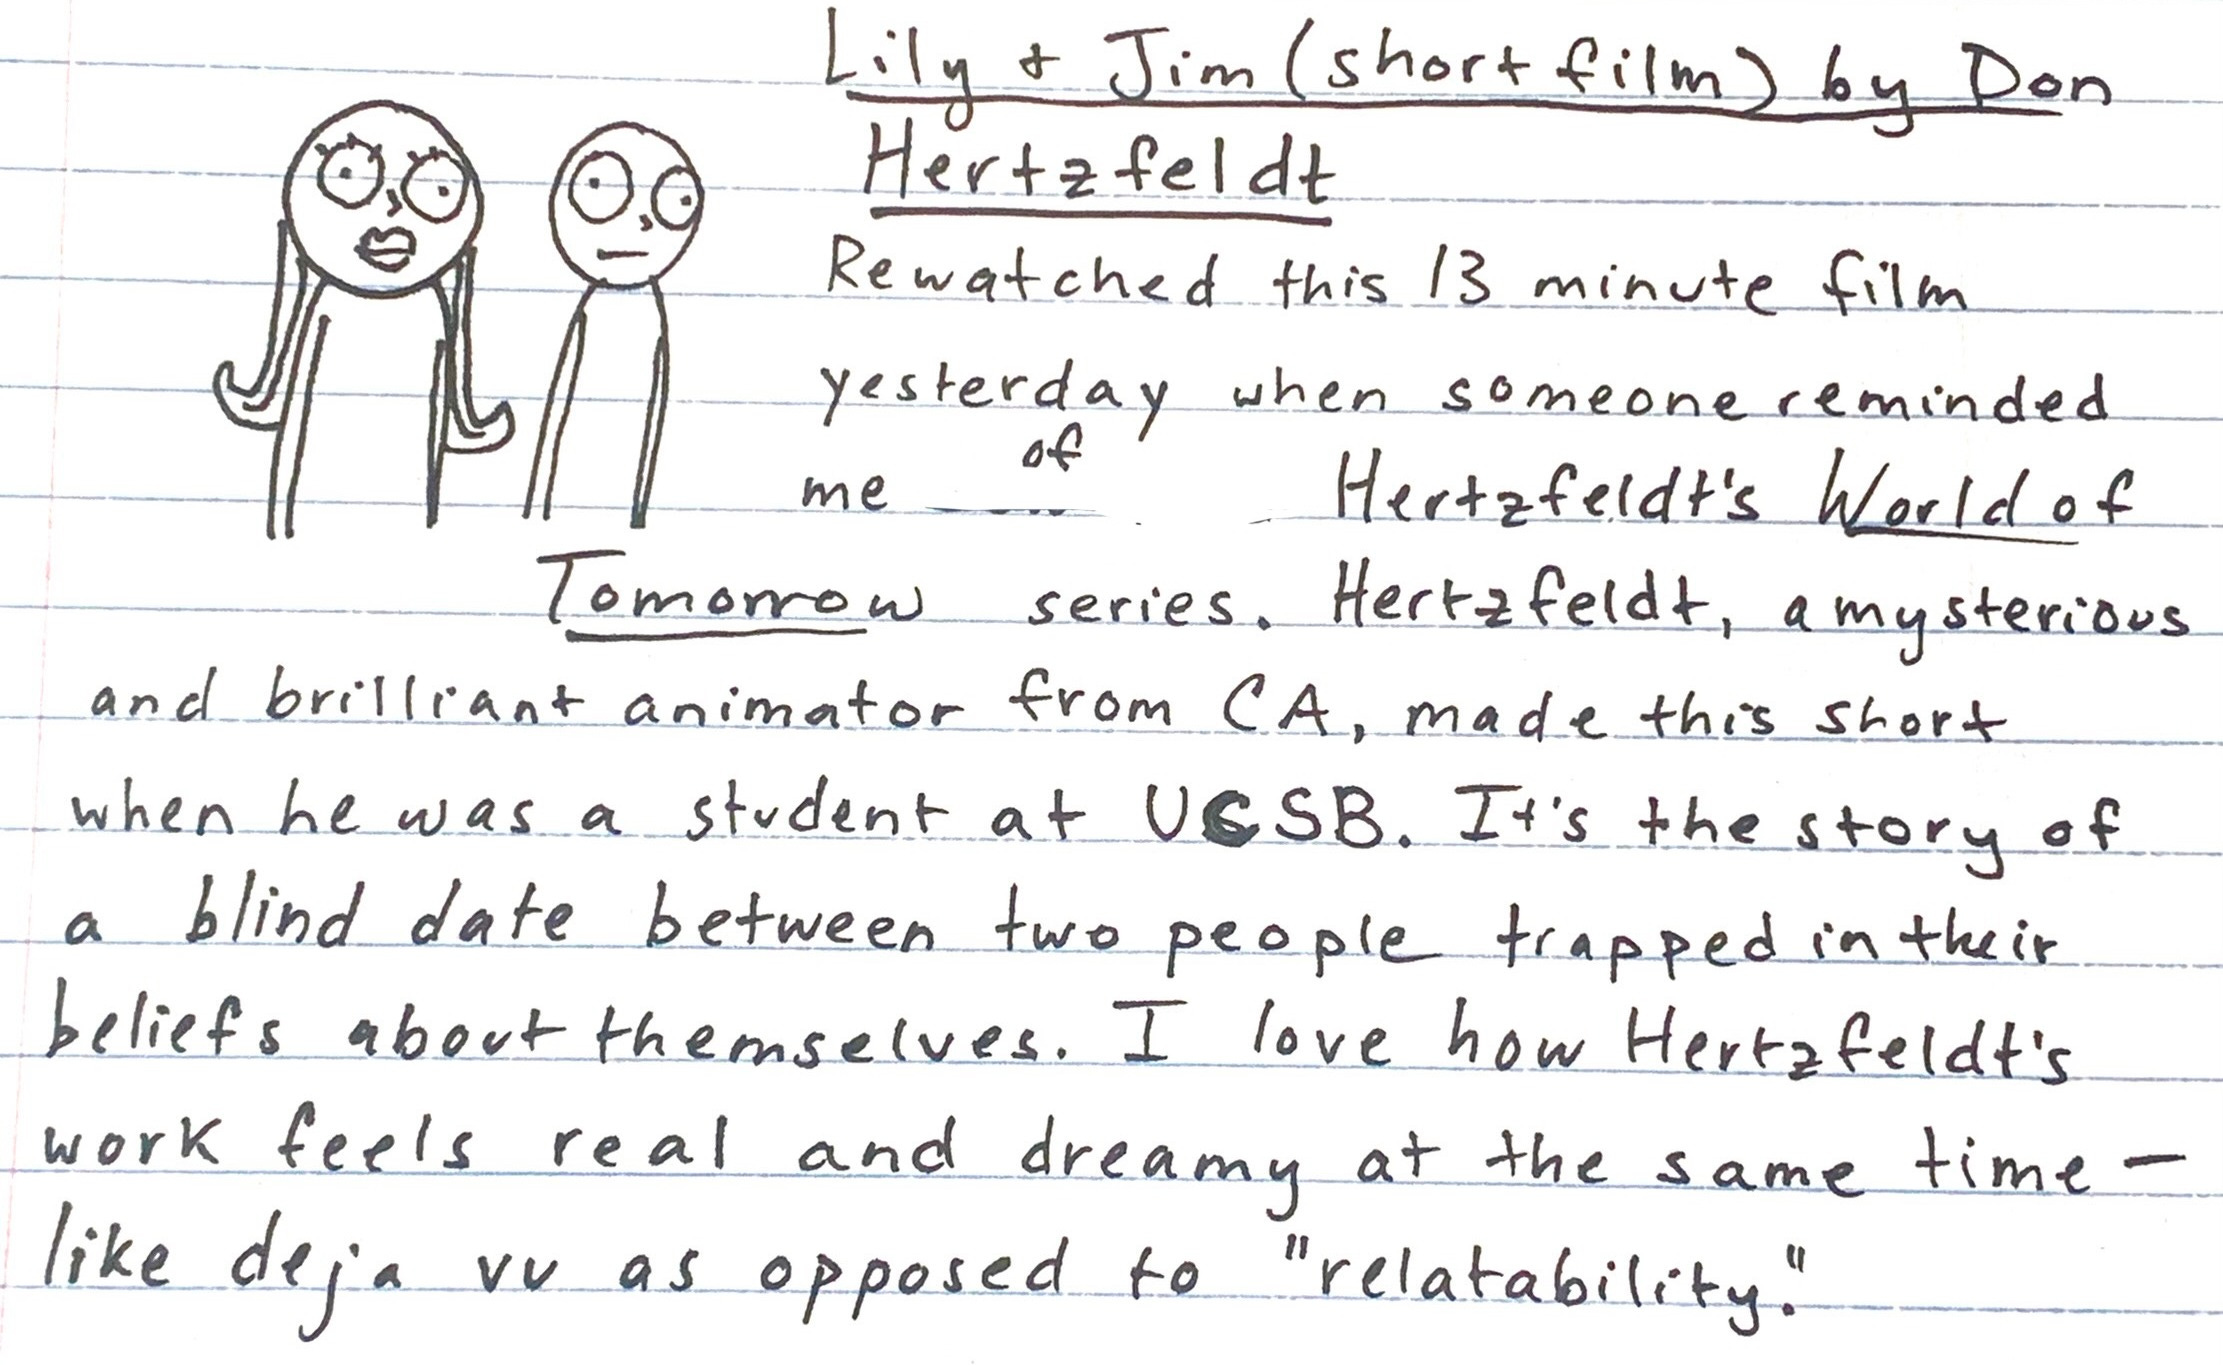 Lily & Jim (short film) by Don
Hertzfeldt
Rewatched this 13 minute film
yesterday when someone reminded
me of Hertzfeldt's World of
Tomorrow series. Hertzfeldt, a mysterious
and brilliant animator from CA, made this short
when he was a student at UCSB. It's the story of
a blind date between two people trapped in their
beliefs about themselves. I love how Hertzfeldt's
work feels real and dreamy at the same time –
like deja vu as opposed to "relatability."